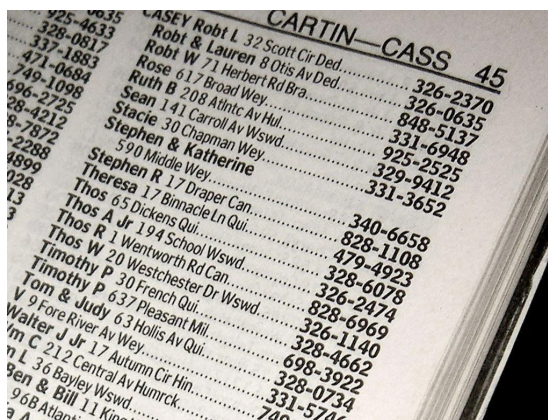 CARTIN—CASS 45
0635
925-4633
328-0817
337-1883
471-0684
749-1098
696-2725
28-4212
8-7872
-2288
4899
028
13
3
CASEY Robt L 32 Scott Cir Ded 326-2370
Robt & Lauren 8 Otis Av Ded 326-0635
Robt W 71 Herbert Rd Bra 848-5137
Rose 617 Broad Wey 331-6948
Ruth B 208 Atlntc Av Hul 925-2525
Sean 141 Carroll Av Wswd 329-9412
Stacie 30 Chapman Wey 331-3652
Stephen & Katherine
590 Middle Wey 340-6658
Stephen R 17 Draper Can 828-1108
Theresa 17 Binnacle Ln Qui 479-4923
Thos 65 Dickens Qui 328-6078
Thos A Jr 194 School Wswd 326-2474
Thos R 1 Wentworth Rd Can 828-6969
Thos W 20 Westchester Dr Wswd 326-1140
Timothy P 30 French Qui 328-4662
Timothy P 637 Pleasant Mil 698-3922
Tom & Judy 63 Hollis Av Qui 328-0734
V 9 Fore River Av Wey 331-5746
Walter J Jr 17 Autumn Cir Hin 749
m C 212 Central Av Humrck
L 36 Bayley Wswd
Ben & Bill 11
96B Atlanti